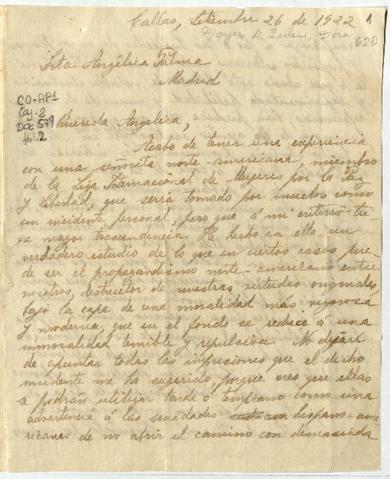 Callao, Setiembre 26 de 1922
1
620
Srta Angélica Palma
Madrid
CO-AP1
Caj-2
Doc 599
fol. 2
Querida Angélica,
Acabo de tener una experiencia
con una señorita norte-americana, miembro
de la Liga Internacional de Mujeres por la Paz
y Libertad, que sería tomado por muchos como
un incidente personal, pero que á mi criterio tie-
ne mayor trascendencia. He hecho en ella un
verdadero estudio de lo que en ciertos casos pue-
de ser el propagandismo norte-americano entre
nosotros, destructor de nuestras virtudes originales
bajo la capa de una moralidad más vigorosa
y moderna, que en el fondo se reduce á una
inmoralidad temible y repulsiva. No dejaré
de apuntar todas las impresiones que el dicho
incidente me ha sugerido, porque creo que ellas
se podrán utilizar tarde ó temprano como una
advertencia á las sociedades hispano-ame-
ricanas de no abrir el camino con demasiada